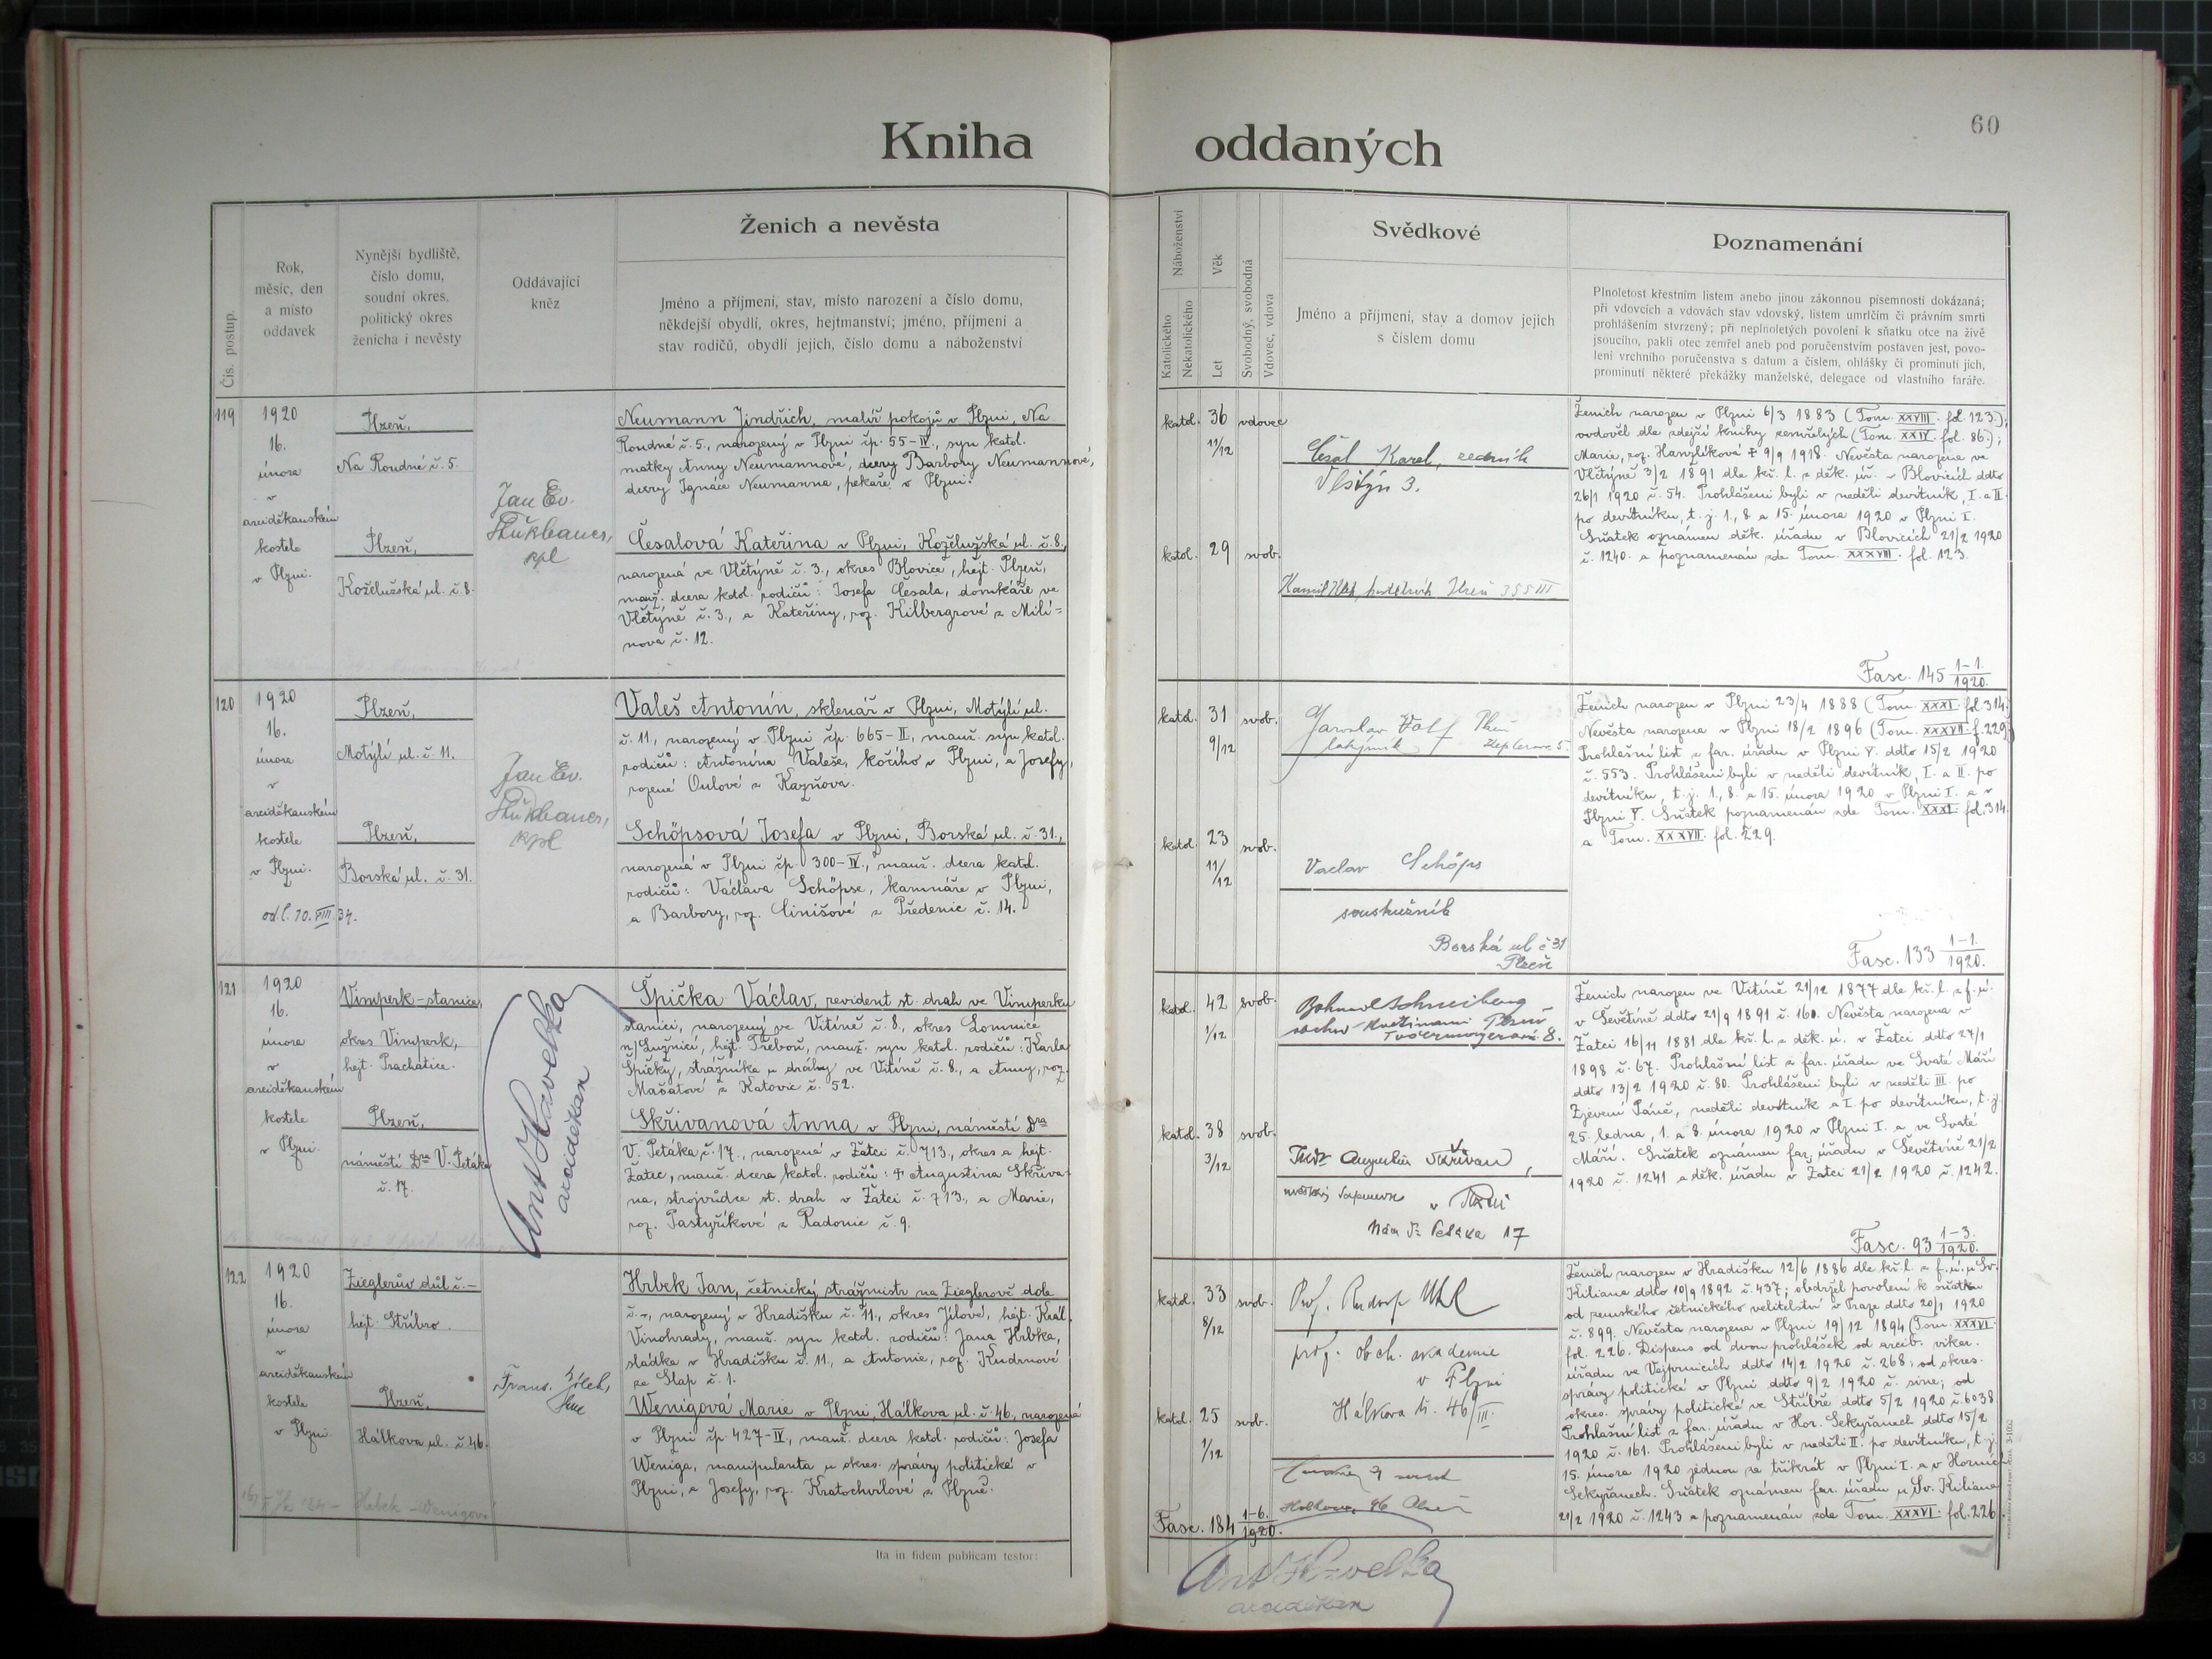 60
Kniha oddaných
Čís. postup.
Rok,
měsíc, den
a místo
oddavek
Nynější bydliště,
číslo domu,
soudní okres,
politický okres
ženicha i nevěsty
Oddávající
kněz
Ženich a nevěsta
Jméno a příjmení, stav, místo narození a číslo domu,
někdejší obydlí, okres, hejtmanství; jméno, příjmení a
stav rodičů, obydlí jejich, číslo domu a náboženství
Náboženství
Katolického
Nekatolického
Věk
Let
Svobodný, svobodná
Vdovec, vdova
Svědkové
Jméno a příjmení, stav a domov jejich
s číslem domu
Poznamenání
Plnoletost křestním listem anebo jinou zákonnou písemností dokázaná;
při vdovcích a vdovách stav vdovský, listem umrlčím či právním smrti
prohlášením stvrzený; při neplnoletých povolení k sňatku otce na živě
jsoucího, pakli otec zemřel aneb pod poručenstvím postaven jest, povo-
lení vrchního poručenstva s datum a číslem, ohlášky či prominutí jich,
prominutí některé překážky manželské, delegace od vlastního faráře.
119
1920
16.
února
v
arciděkanském
kostele
v Plzni.
Plzeň,
Na Roudné č. 5.
Plzeň,
Koželužská ul. č. 8.
Jan Ev.
kpl
Neumann Jindřich, malíř pokojů v Plzni, Na
Roudné č. 5., narozený v Plzni čp. 55-IV., syn katol.
matky Anny Neumannové, dcery Barbory Neumannové,
dcery Ignáce Neumanna, pekaře v Plzni.
Česalová Kateřina v Plzni, Koželužská ul. č. 8.,
narozená ve Vlčtýně č. 3., okres Blovice, hejt. Plzeň,
manž. dcera katol. rodičů: Josefa Česala, domkáře ve
Vlčtýně č. 3., a Kateřiny, roz. Kilbergrové z Milí=
nova č. 12.
katol. 36 vdovec
11/12
katol. 29 svob.
Česal Karel, zedník
Vlčtýn 3.
Plzeň 355 III
Ženich narozen v Plzni 6/3 1883 (Tom. XXVIII. fol. 123.);
ovdověl dle zdejší knihy zemřelých (Tom. XXIV. fol. 86.);
Marie, roz. Hanzlíková † 9/9 1918. Nevěsta narozena ve
Vlčtýně 3/2 1891 dle kř. l. z děk. úř. v Blovicích ddto
26/1 1920 č. 54. Prohlášeni byli v neděli devítník, I. a II.
po devítníku, t. j. 1., 8. a 15. února 1920 v Plzni I.
Sňatek oznámen děk. úřadu v Blovicích 21/2 1920
č. 1240. a poznamenán zde Tom. XXXVIII. fol. 123.
Fasc. 145 1-1./1920.
120
1920
16.
února
v
arciděkanském
kostele
v Plzni.
Plzeň,
Motýlí ul. č. 11.
Plzeň,
Borská ul. č. 31.
Jan Ev.
kpl
Valeš Antonín, sklenář v Plzni, Motýlí ul.
č. 11., narozený v Plzni čp. 665-II., manž. syn katol.
rodičů: Antonína Valeše, kočího v Plzni, a Josefy,
rozené Oulové z Kaznova.
Schöpsová Josefa v Plzni, Borská ul. č. 31.,
narozená v Plzni čp. 300-IV., manž. dcera katol.
rodičů: Václava Schöpse, kamnáře v Plzni,
a Barbory, roz. Činišové z Předenic č. 14.
katol. 31 svob.
9/12
katol. 23 svob.
11/12
Jaroslav
Vaclav Schöps
soustružník
Borská ul č 31
Plzeň
Ženich narozen v Plzni 23/4 1888 (Tom. XXXI. fol. 314.)
Nevěsta narozena v Plzni 18/2 1896 (Tom. XXXVII. f. 229.)
Prohlašní list z far. úřadu v Plzni V. ddto 15/2 1920
č. 553. Prohlášeni byli v neděli devítník, I. a II. po
devítníku, t. j. 1., 8. a 15. února 1920 v Plzni I. a v
Plzni V. Sňatek poznamenán zde Tom. XXXI. fol. 314.
a Tom. XXXVII. fol. 229.
Fasc. 133 1-1./1920.
121
1920
16.
února
v
arciděkanském
kostele
v Plzni.
Vimperk-stanice,
okres Vimperk,
hejt. Prachatice.
Plzeň,
náměstí Dra V. Petáka
č. 17.
Ant Havelka
arciděkan
Špička Václav, revident st. drah ve Vimperku
stanici, narozený ve Vitíně č. 8., okres Lomnice
n/Lužnicí, hejt. Třeboň, manž. syn katol. rodičů: Karla
Špičky, strážníka u dráhy ve Vitíně č. 8., a Anny, roz.
Mašatové z Katovic č. 52.
Skřivanová Anna v Plzni, náměstí Dra
V. Petáka č. 17., narozená v Žatci č. 713., okres a hejt.
Žatec, manž. dcera katol. rodičů: † Augustina Skřiva-
na, strojvůdce st. drah v Žatci č. 713., a Marie,
roz. Pastyříkové z Radonic č. 9.
katol. 42 svob.
1/12
katol. 38 svob.
3/12
Plzeň
8.
Augustin Skřivan,
v Plzni
Nám Dr Petáka 17
Ženich narozen ve Vitíně 21/12 1877 dle kř. l. z f. ú.
v Ševětíně ddto 21/9 1891 č. 160. Nevěsta narozena v
Žatci 16/11 1881 dle kř. l. z děk. ú. v Žatci ddto 27/1
1898 č. 67. Prohlašní list z far. úřadu ve Svaté Máří
ddto 13/2 1920 č. 80. Prohlášeni byli v neděli III. po
Zjevení Páně, neděli devítník a I. po devítníku, t. j.
25. ledna, 1. a 8. února 1920 v Plzni I. a ve Svaté
Máří. Sňatek oznámen far. úřadu v Ševětíně 21/2
1920 č. 1241 a děk. úřadu v Žatci 21/2 1920 č. 1242.
Fasc. 93 1-3./1920.
122
1920
16.
února
v
arciděkanském
kostele
v Plzni.
Zieglerův důl č. -
hejt. Stříbro.
Plzeň,
Hálkova ul. č. 46.
Hrbek Jan, četnický strážmistr na Zieglerově dole
č. -, narozený v Hradišku č. 11., okres Jílové, hejt. Král.
Vinohrady, manž. syn katol. rodičů: Jana Hrbka,
sládka v Hradišku č. 11., a Antonie, roz. Kudrnové
ze Slap č. 1.
Wenigová Marie v Plzni, Hálkova ul. č. 46., narozená
v Plzni čp. 427-IV., manž. dcera katol. rodičů: Josefa
Weniga, manipulanta u okres. správy politické v
Plzni, a Josefy, roz. Kratochvílové z Plzně.
Hrbek - Wenigová
katol. 33 svob.
8/12
katol. 25 svob.
1/12
Prof. Rudolf Uhl
prof. obch. akademie
v Plzni
Hálkova tř. 46/III.
Ženich narozen v Hradišku 12/6 1886 dle kř. l. z f. ú. u Sv.
Kiliana ddto 10/9 1892 č. 437; obdržel povolení k sňatku
od zemského četnického velitelství v Praze ddto 20/1 1920
č. 899. Nevěsta narozena v Plzni 19/12 1894 (Tom. XXXVI.
fol. 226. Dispens od dvou prohlášek od arcib. vikar.
úřadu ve Vejprnicích ddto 14/2 1920 č. 268; od okres.
správy politické v Plzni ddto 9/2 1920 č. sine; od
okres. správy politické ve Stříbře ddto 5/2 1920 č. 6038
Prohlašní list z far. úřadu v Hor. Sekyřanech ddto 15/2
1920 č. 161. Prohlášeni byli v neděli II. po devítníku, t. j.
15. února 1920 jednou za třikrát v Plzni I. a v Horních
Sekyřanech. Sňatek oznámen far. úřadu u Sv. Kiliana
21/2 1920 č. 1243 a poznamenán zde Tom. XXXVI. fol. 226.
Fasc. 184 1-6./1920.
Ita in fidem publicam testor:
Ant Havelka
arciděkan